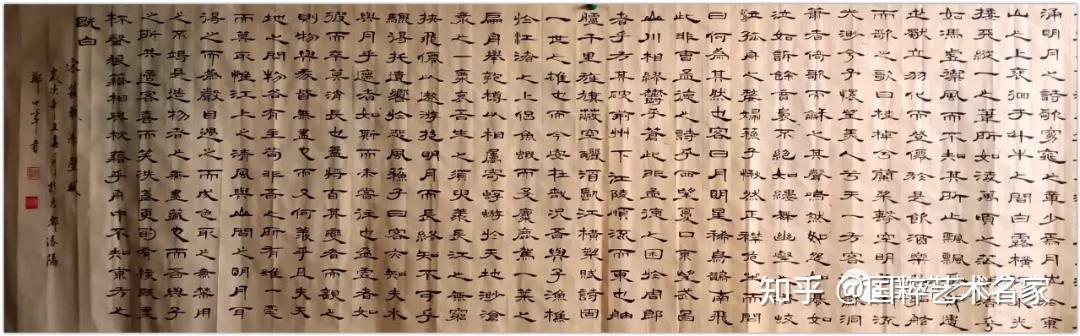 誦明月之詩歌窈窕之章少焉月出於東
山之上裵徊于斗牛之間白露橫江水光
接天縱一之葦所如凌萬頃之茫
如馮虛御風而不知其所止飄飄乎如遺
世獨立羽化而登僊於是飲酒樂甚扣舷
而歌之歌曰桂棹兮蘭槳擊空明兮泝流
光渺兮予懷望美人兮天一方客有吹洞
簫者倚歌而和之其聲嗚然如怨如慕如
泣如訴餘音裊不絕如縷舞幽壑之潛蛟
泣孤舟之嫠婦蘇子愀然正襟危坐而問
客曰何為其然也客曰月明星稀烏鵲南飛
此非曹孟德之詩乎西望夏口東望武昌
山川相繆鬱乎蒼此非孟德之困於周郎
者乎方其破荊州下江陵順流而東也舳
艫千里旌旗蔽空釃酒臨江橫槊賦詩固
一世之雄也而今安在哉況吾與子漁樵
於江渚之上侶魚蝦而友麋鹿駕一葉之
扁舟舉匏樽以相屬寄蜉蝣於天地渺滄
海之一粟哀吾生之須臾羨長江之無窮
挾飛僊以遨遊抱明月而長終知不可乎
驟得托遺響於悲風蘇子曰客亦知夫水
與月乎逝者如斯而未嘗往也盈虛者如
彼而卒莫消長也蓋將自其變者而觀之
則物與我皆無盡也而又何羨乎且夫天
地之間物各有主苟非吾之所有雖一毫
而莫取惟江上之清風與山間之明月耳
得之而為聲目遇之而成色取之無禁用
之不竭是造物者之無盡藏也而吾與子
之所共適客喜而笑洗盞更酌肴核既盡
杯盤狼藉相與枕藉乎舟中不知東方之
既白
宋蘇軾赤壁賦
歲次辛丑春月於古
鄭四軍書
知乎 @国粹艺术名家